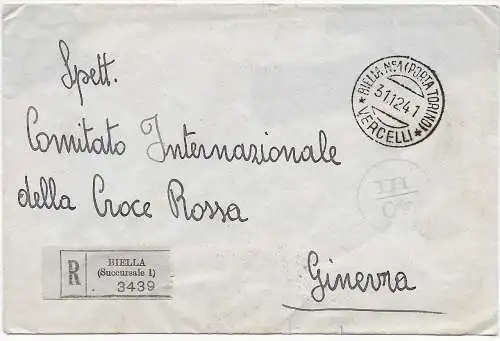 Spett.
Comitato Internazionale
della Croce Rossa
Ginevra
* BIELLA N°1 (PORTA TORINO) *
31.12.41
VERCELLI
R
BIELLA
(Succursale 1)
3439